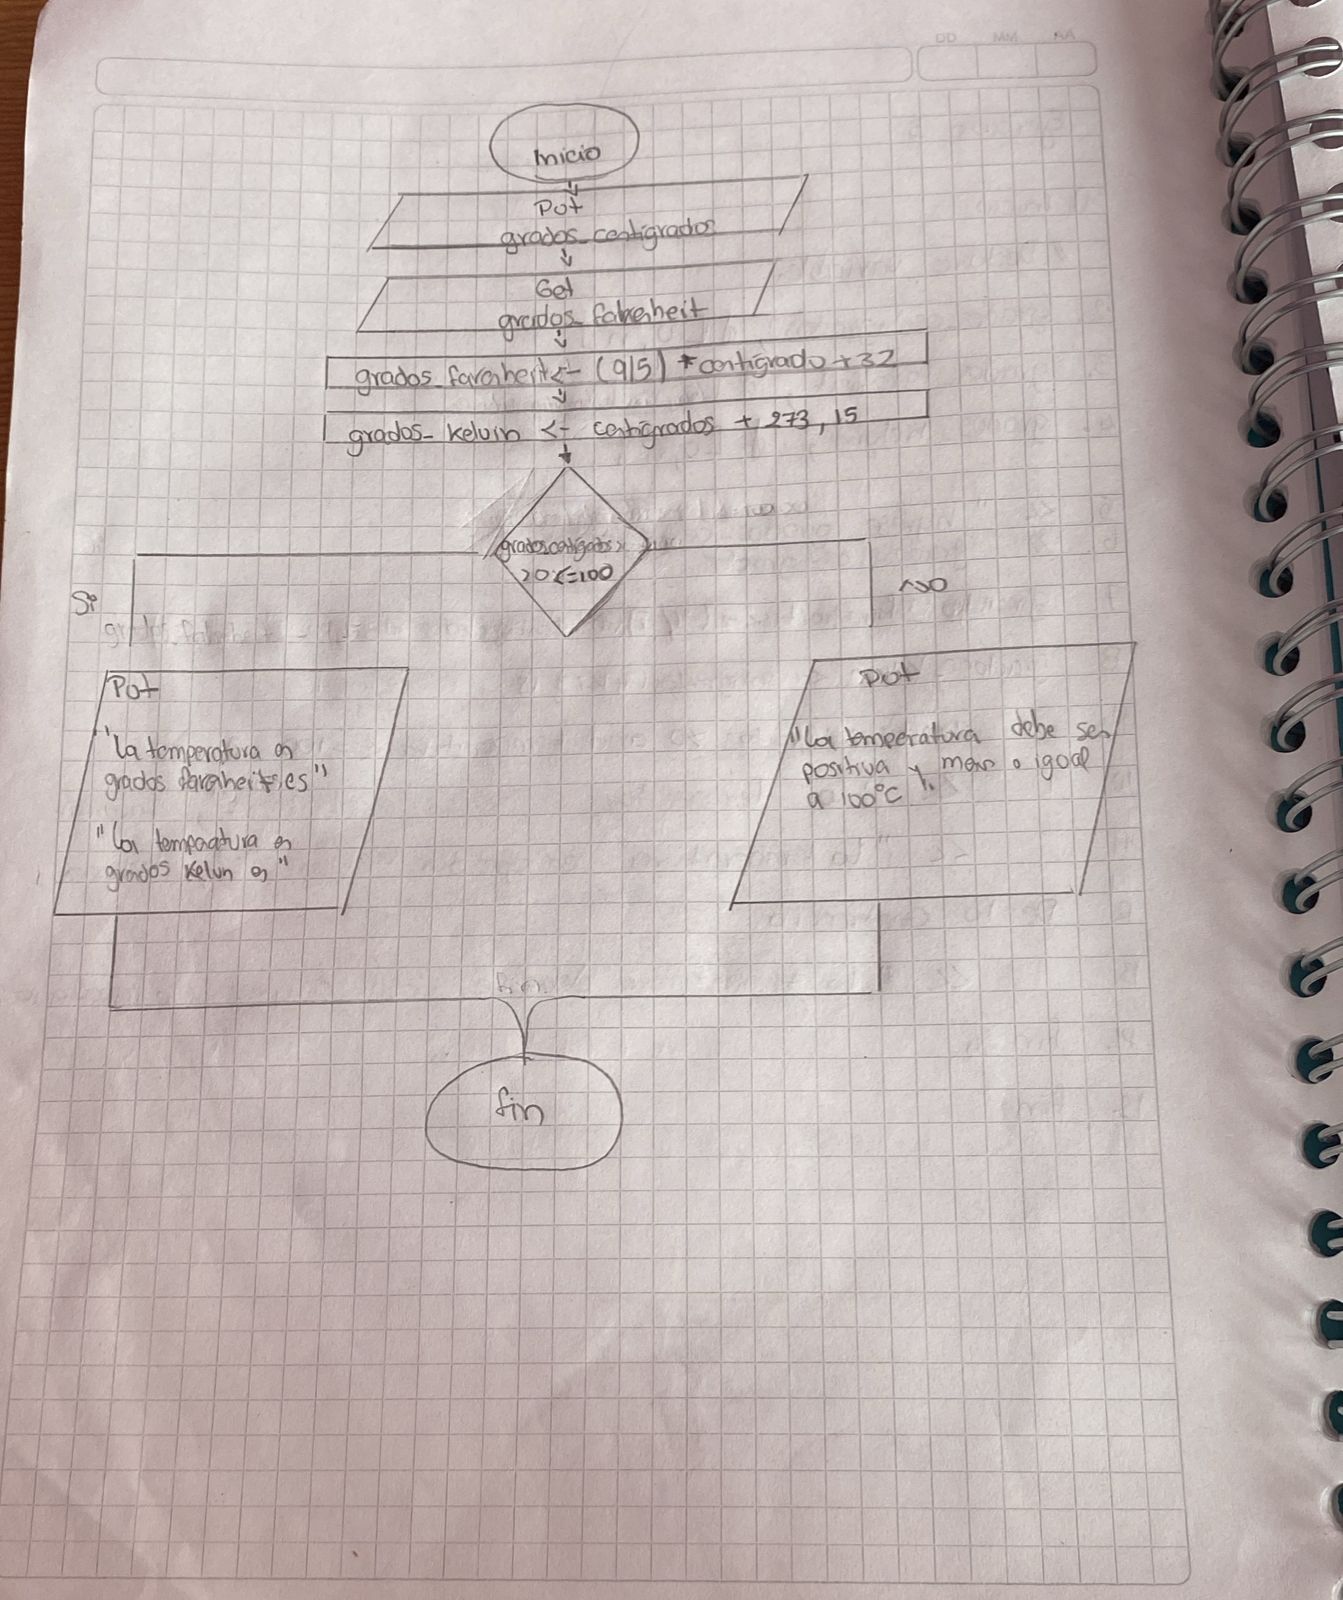 DD MM AA
Inicio
Put
grados_centigrados
Get
grados_fahrenheit
grados_farenheit <- (9/5) * centigrado + 32
grados_kelvin <- centigrados + 273,15
grados centigrados >
20 <= 100
Si
NO
Put
"la temperatura en
grados farenheit es"
"la temperatura en
grados kelvin es"
Put
"la temperatura debe ser
positiva y menor o igual
a 100°C"
fin